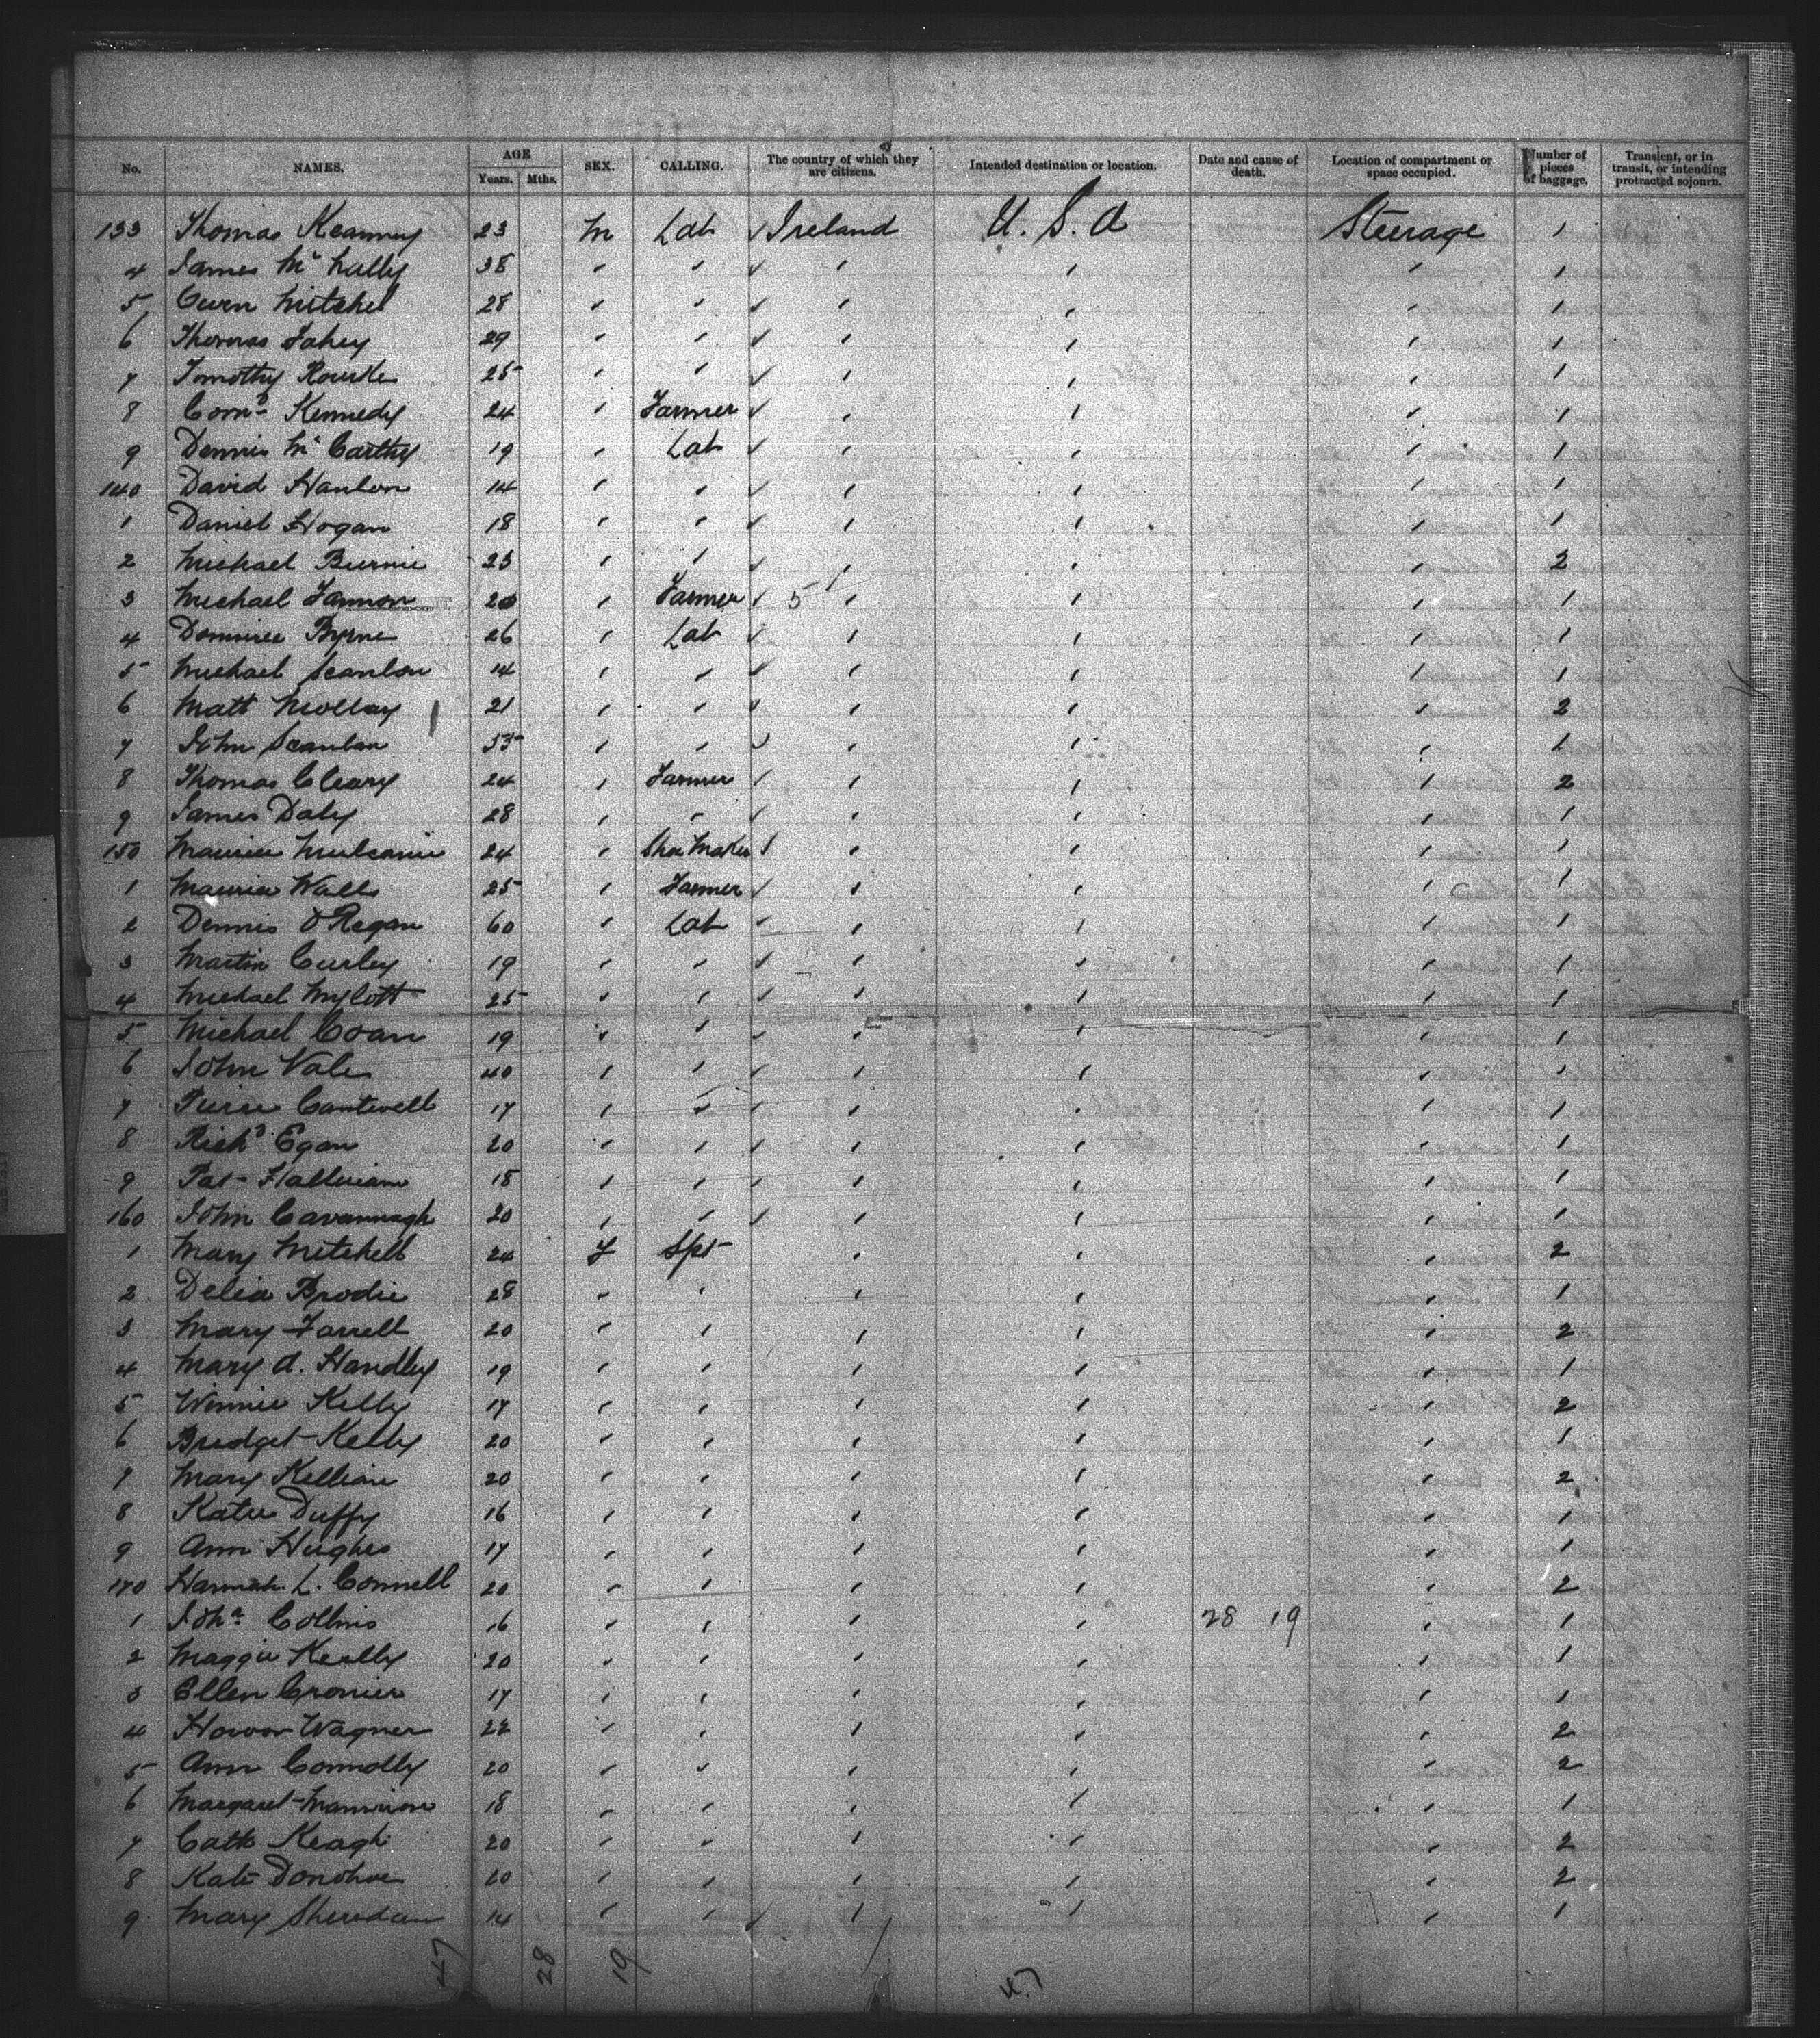 No. NAMES. AGE Years. Mths. SEX. CALLING. The country of which they are citizens. Intended destination or location. Date and cause of death. Location of compartment or space occupied. Number of pieces of baggage. Transient, or in transit, or intending protracted sojourn.
133 Thomas Kearney 23 M Lab Ireland U. S. A Steerage 1
4 James McNally 38 " " " " " 1
5 Owen Mitchel 28 " " " " " 1
6 Thomas Fahey 29 " " " " " 1
7 Timothy Rourke 25 " " " " " 1
8 Corns Kennedy 24 " Farmer " " " 1
9 Dennis McCarthy 19 " Lab " " " 1
140 David Hanlon 14 " " " " " 1
1 Daniel Hogan 18 " " " " " 1
2 Michael Burnie 23 " " " " " 2
3 Michael Fannon 20 " Farmer 51 " " " 1
4 Dominic Byrne 26 " Lab " " " 1
5 Michael Scanlon 14 " " " " " 1
6 Matt Molloy 21 " " " " " 2
7 John Scanlan 35 " " " " " 1
8 Thomas Cleary 24 " Farmer " " " 2
9 James Daly 28 " " " " " 1
150 Maurice 24 " Shoe Maker " " " 1
1 Maurice Walls 25 " Farmer " " " 1
2 Dennis O'Regan 60 " Lab " " " 1
3 Martin Curley 19 " " " " " 1
4 Michael Mylott 25 " " " " " 1
5 Michael Coan 19 " " " " " 1
6 John Vale 40 " " " " " 1
7 Pierce Cantwell 17 " " " " " 1
8 Richd Egan 20 " " " " " 1
9 Pat 18 " " " " " 1
160 John Cavannagh 20 " " " " " 1
1 Mary Mitchell 24 F Spt " " " 2
2 Delia Brodie 28 " " " " " 1
3 Mary Farrell 20 " " " " " 2
4 Mary A. Handley 19 " " " " " 1
5 Winnie Kelly 17 " " " " " 2
6 Bridget Kelly 20 " " " " " 1
7 Mary Killian 20 " " " " " 2
8 Katie Duffy 16 " " " " " 1
9 Ann Hughes 17 " " " " " 1
170 Hannah L. Connell 20 " " " " " 2
1 Joha Collins 16 " " " " 28 19 " 1
2 Maggie Keally 20 " " " " " 1
3 Ellen Cronier 17 " " " " " 1
4 Wagner 22 " " " " " 2
5 Ann Connolly 20 " " " " " 2
6 Margaret Mannion 18 " " " " " 1
7 Cath Keagh 20 " " " " " 2
8 Kate Donohoe 20 " " " " " 2
9 Mary Sheridan 14 " " " " " 1
47 28 19 47